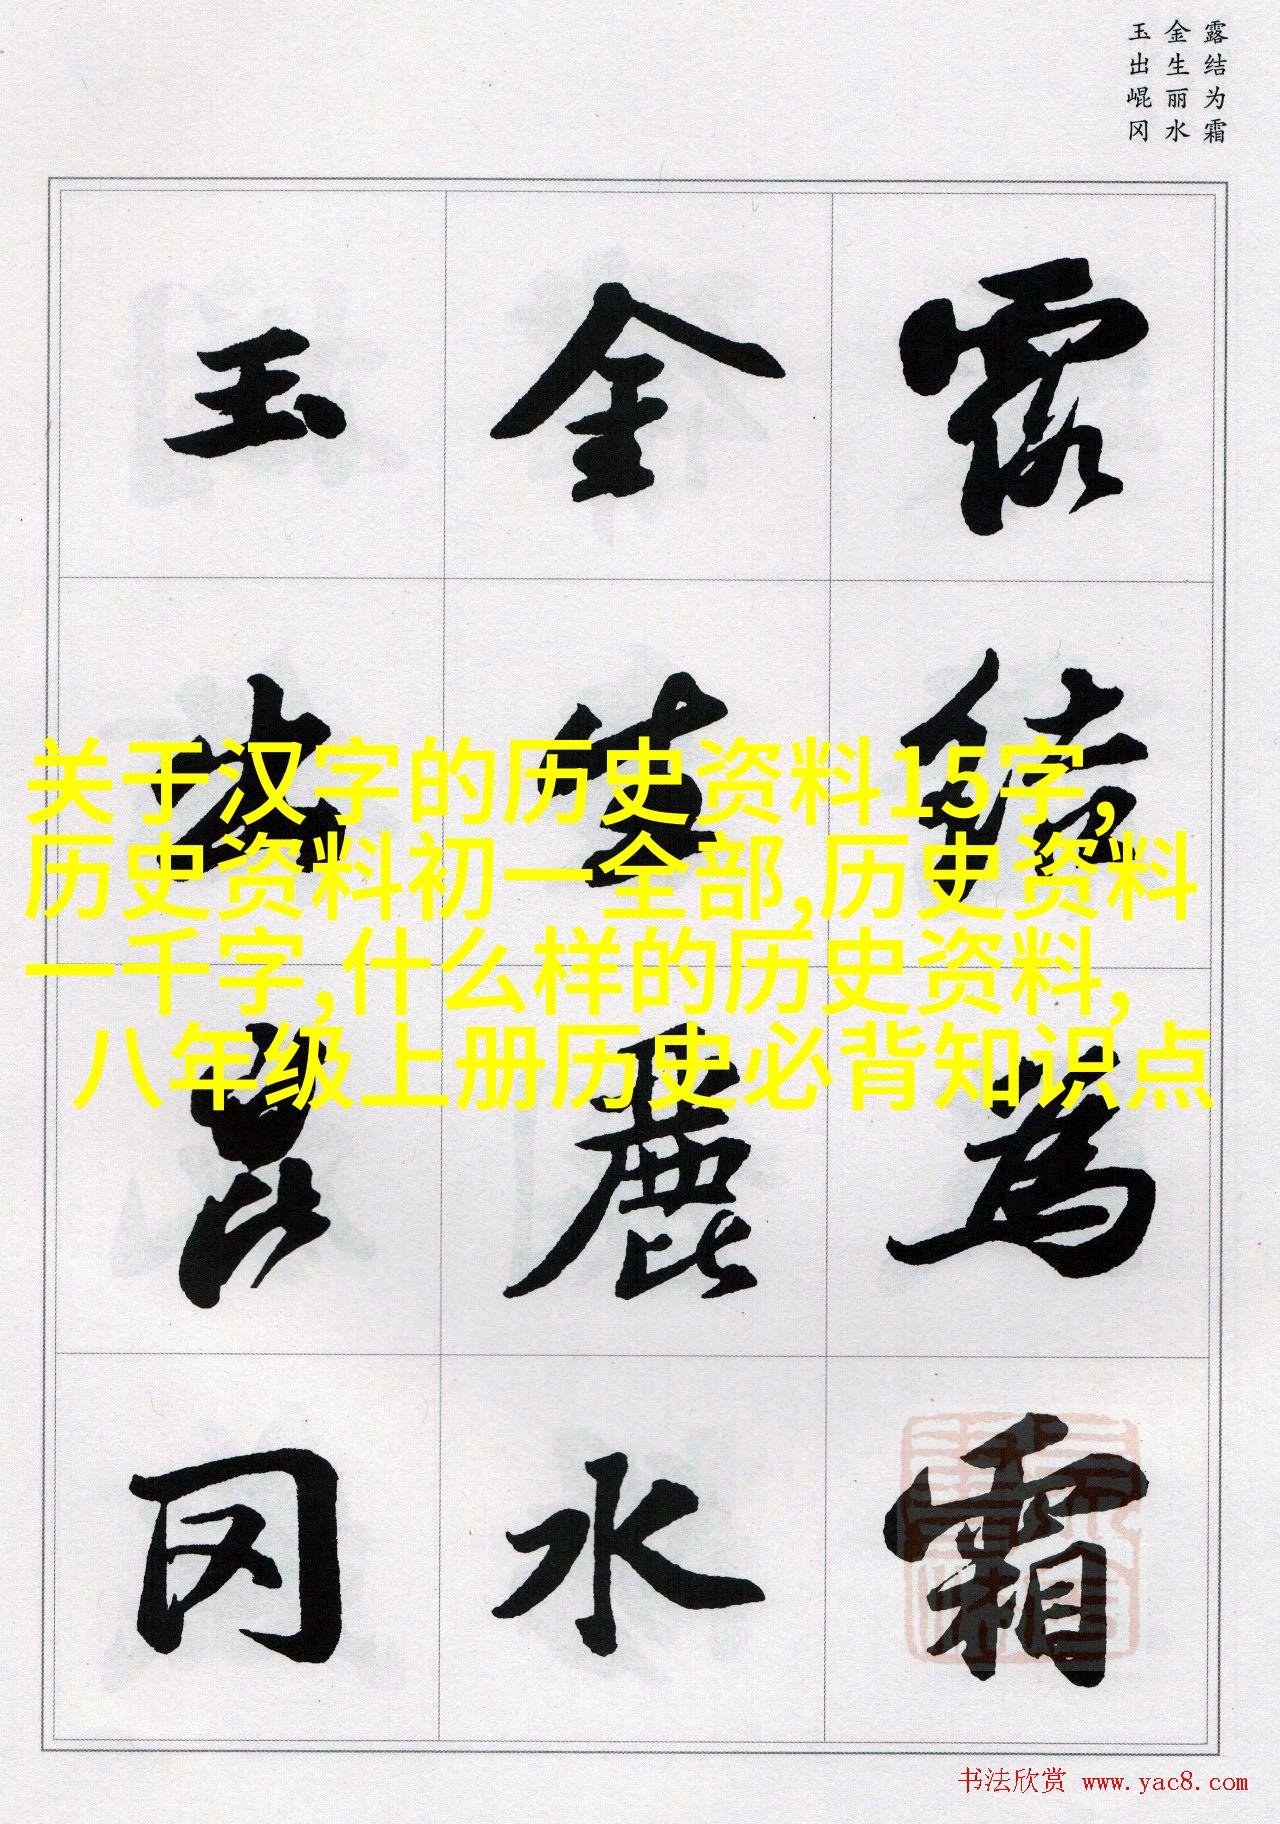 露结为霜
金生丽水
玉出崐冈
露结為霜
金生麗水
玉出崑冈
关于汉字的历史资料15字,
历史资料初一全部,历史资料
一千字,什么样的历史资料,
八年级上册历史必背知识点
书法欣赏 www.yac8.com